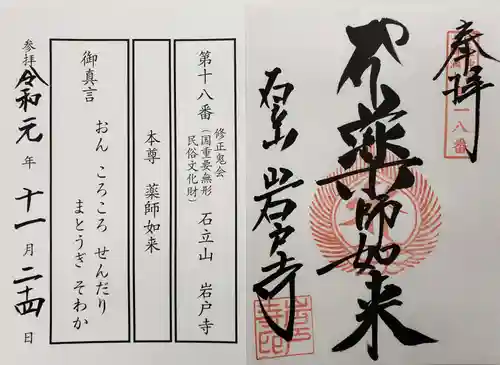 奉拝
八番
薬師如来
石立山 岩戸寺
岩戸寺印
第十八番 修正鬼会
(国重要無形
民俗文化財) 石立山 岩戸寺
本尊 薬師如来
御真言
おん ころころ せんだり
まとうぎ そわか
参拝 令和元年十一月二十四日